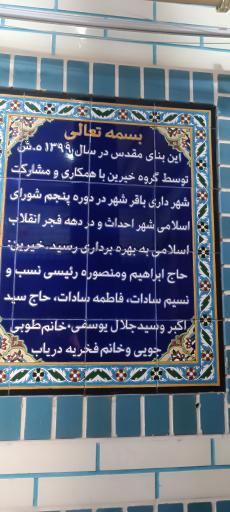 بسمه تعالی
این بنای مقدس در سال ۱۳۹۹ ه.ش
توسط گروه خیرین با همکاری و مشارکت
شهرداری باقر شهر در دوره پنجم شورای
اسلامی شهر احداث و در دهه فجر انقلاب
اسلامی به بهره برداری رسید. خیرین:
حاج ابراهیم ومنصوره رئیسی نسب و
نسیم سادات، فاطمه سادات، حاج سید
اکبر وسیدجلال یوسفی، خانم طوبی
جویی وخانم فخریه دریاب